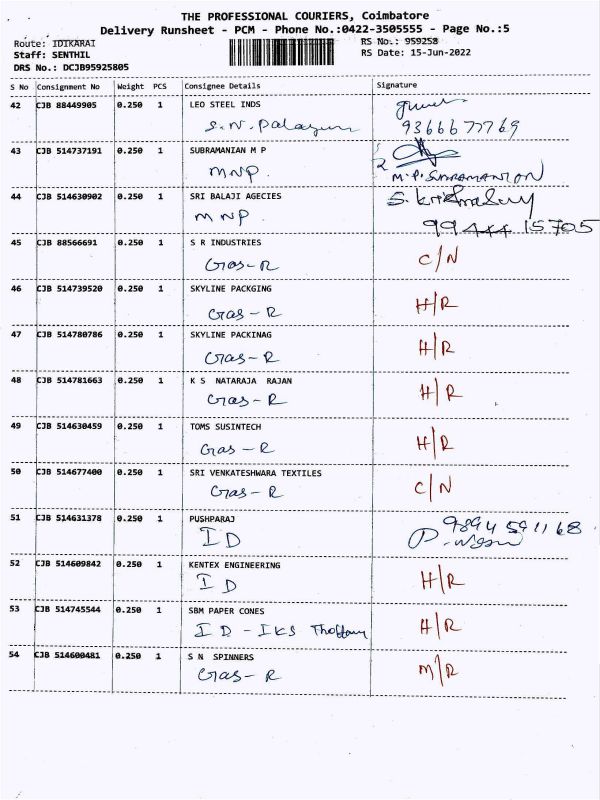 THE PROFESSIONAL COURIERS, Coimbatore
Delivery Runsheet - PCM - Phone No.:0422-3505555 - Page No.:5
Route: IDIKARAI RS No.: 959258
Staff: SENTHIL RS Date: 15-Jun-2022
DRS No.: DCJB95925805
S No Consignment No Weight PCS Consignee Details Signature
42 CJB 88449905 0.250 1 LEO STEEL INDS
S.N. Palayam 9366677769
43 CJB 514737191 0.250 1 SUBRAMANIAN M P
MNP M.P. SUBRAMANION
44 CJB 514630902 0.250 1 SRI BALAJI AGECIES
MNP. 9944415705
45 CJB 88566691 0.250 1 S R INDUSTRIES
Gas-R C/N
46 CJB 514739520 0.250 1 SKYLINE PACKGING
Gas-R H/R
47 CJB 514780786 0.250 1 SKYLINE PACKINAG
Gas-R H/R
48 CJB 514781663 0.250 1 K S NATARAJA RAJAN
Gas-R H/R
49 CJB 514630459 0.250 1 TOMS SUSINTECH
Gas-R H/R
50 CJB 514677400 0.250 1 SRI VENKATESHWARA TEXTILES
Gas-R C/N
51 CJB 514631378 0.250 1 PUSHPARAJ 9894591168
ID
52 CJB 514609842 0.250 1 KENTEX ENGINEERING
ID H/R
53 CJB 514745544 0.250 1 SBM PAPER CONES
ID - IKS Thottam H/R
54 CJB 514600481 0.250 1 S N SPINNERS
Gas-R M/R